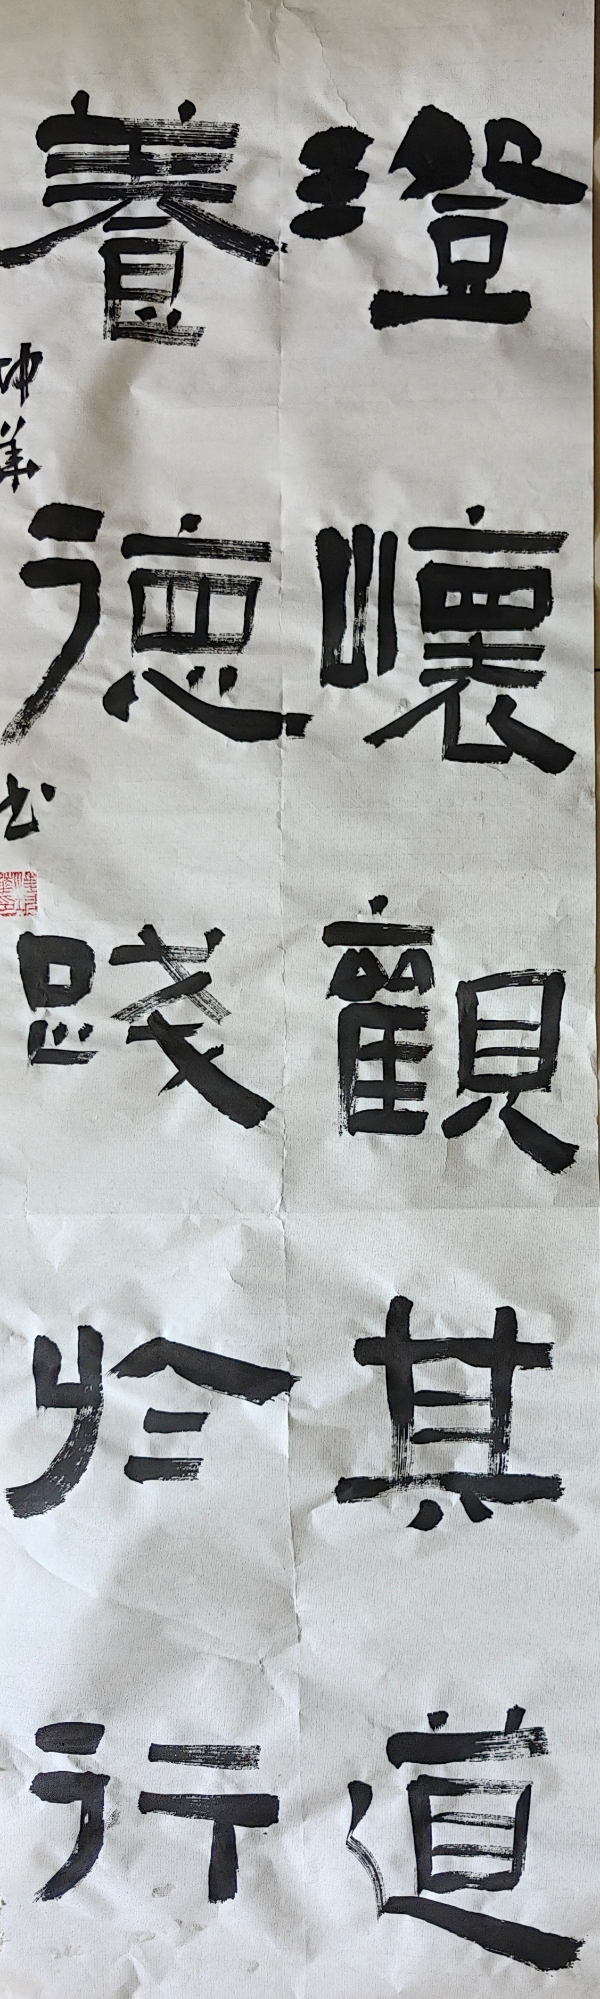 澄懷觀其道
養德踐於行
坤華書